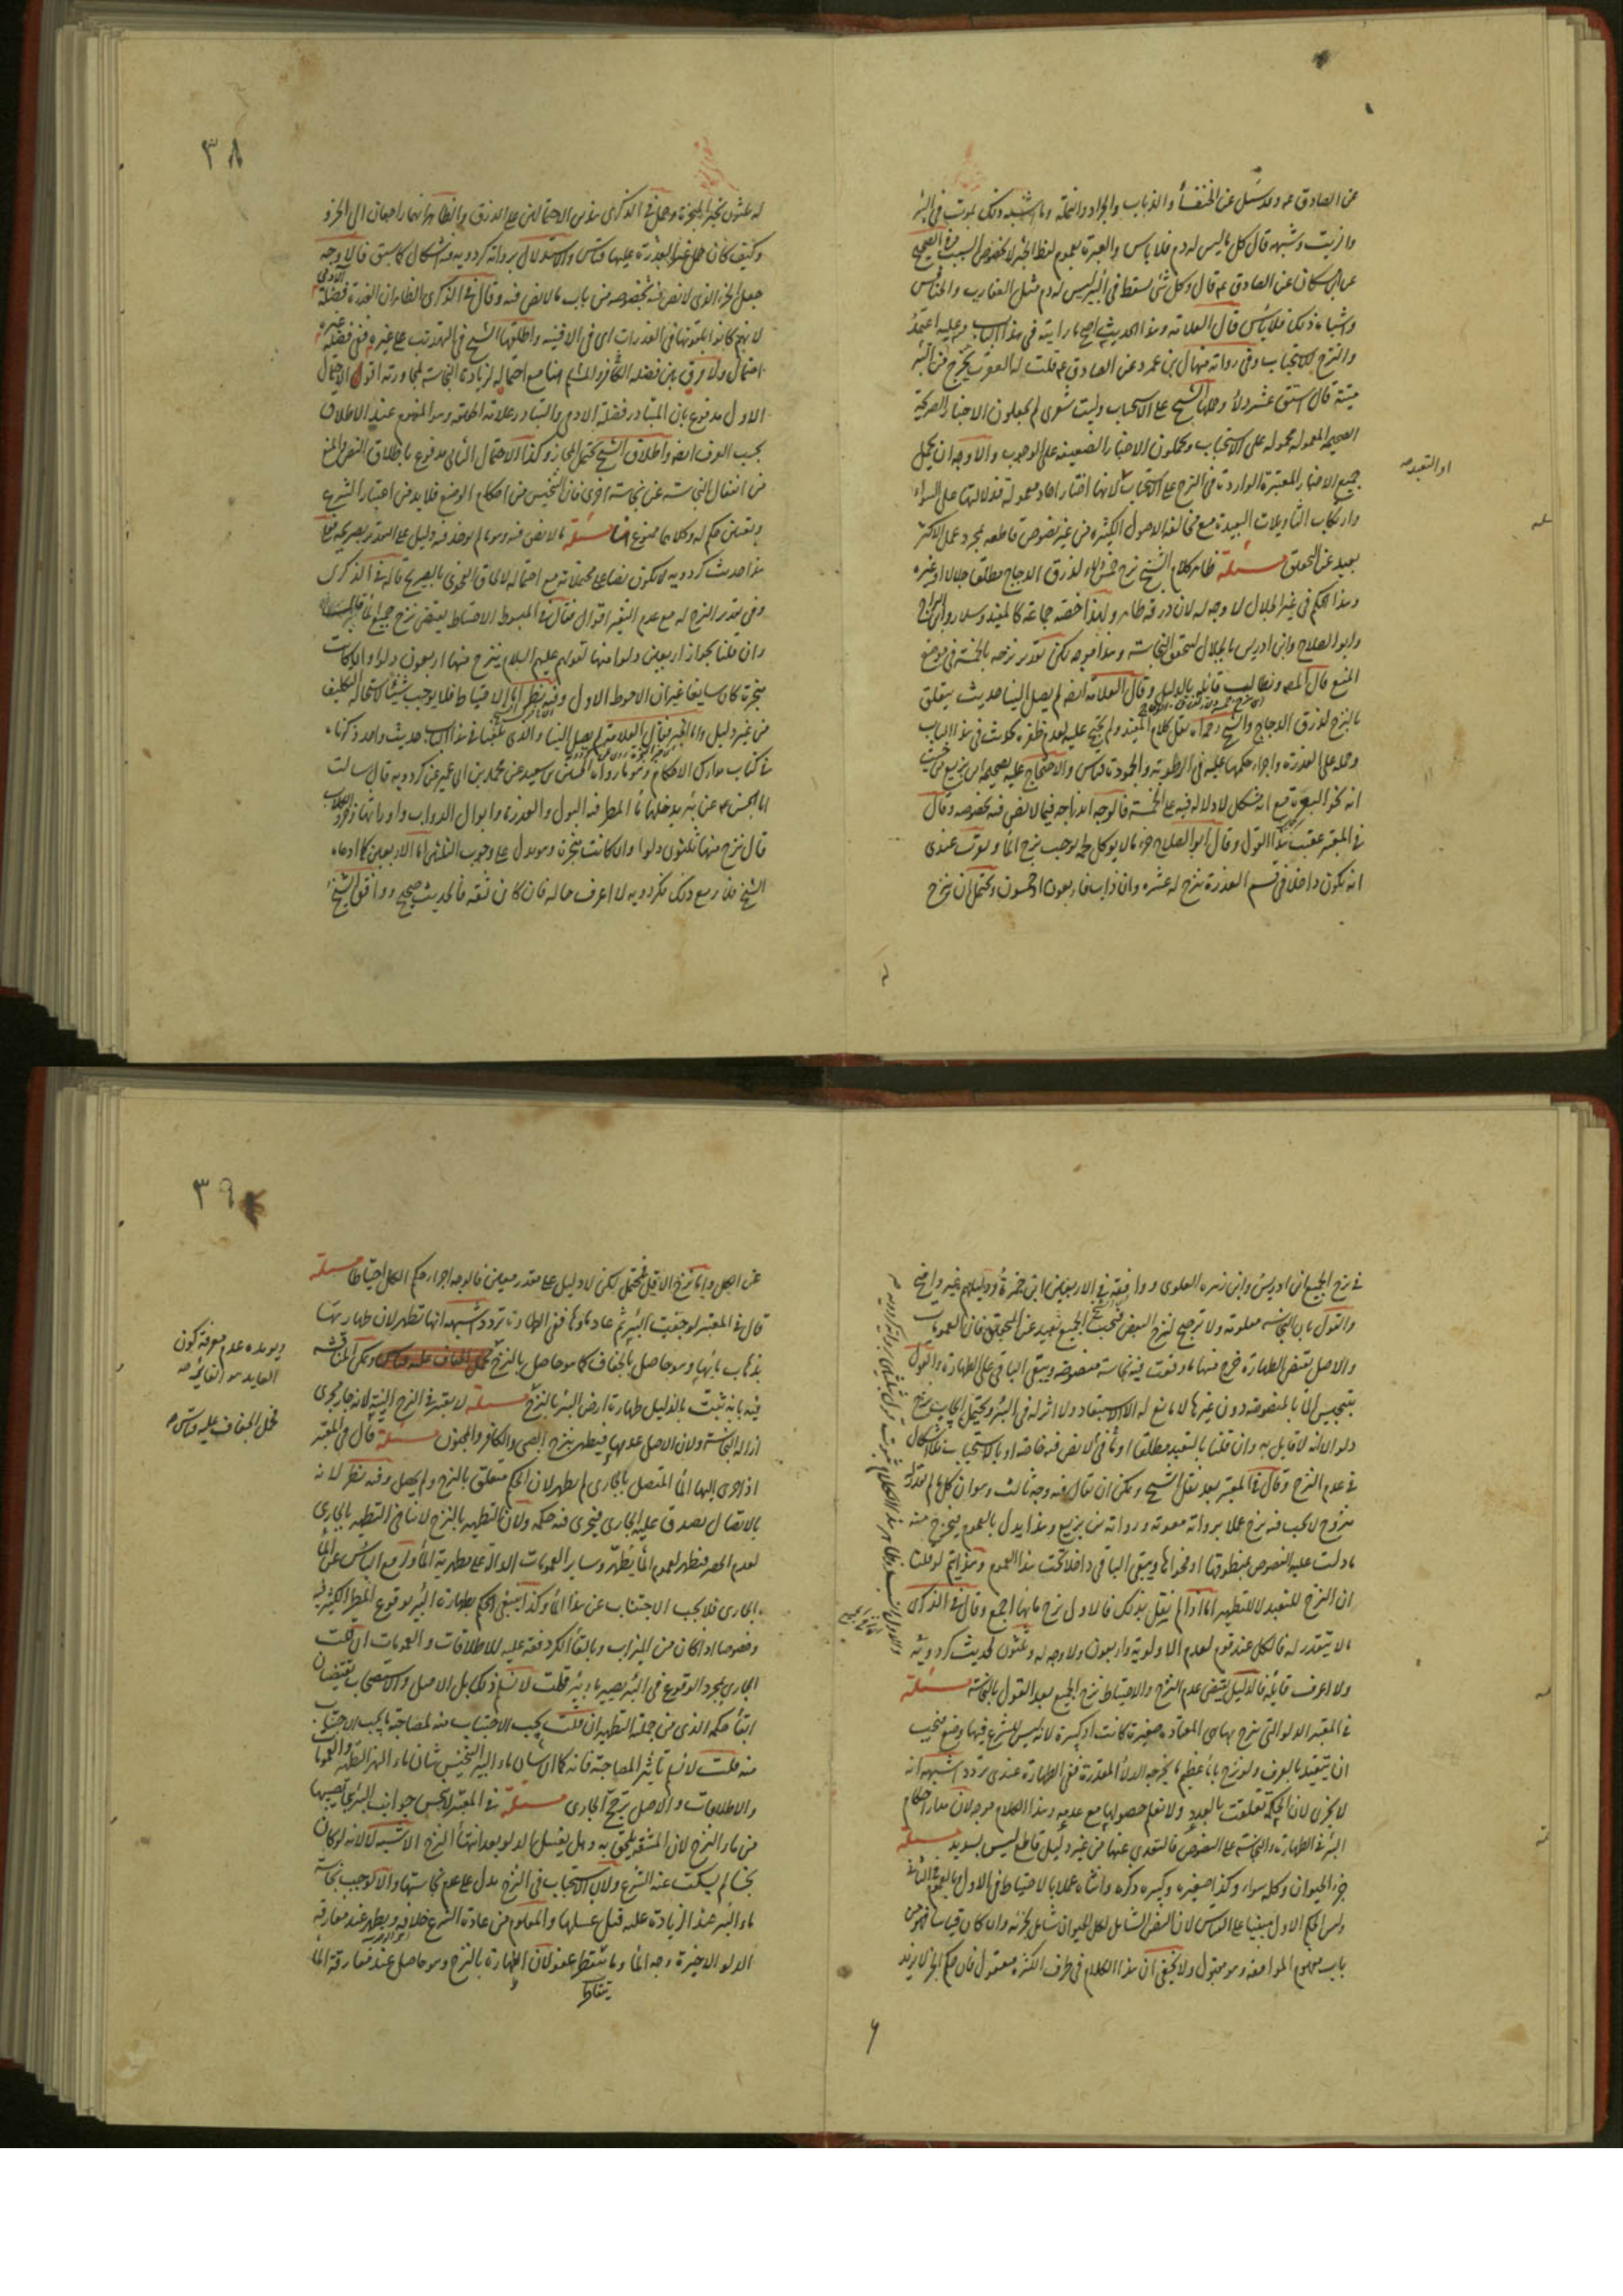 عن الصادق ع وقد سئل عن الخنفساء والذباب والجراد والنملة وما اشبه ذلك يموت في البئر
والزيت وشبهه قال كل ما ليس له دم فلا باس والعبرة بعموم لفظ الخبر لا بخصوص السبب
عن ابن مسكان عن الصادق ع قال وكل شئ يسقط في البئر ليس له دم مثل العقارب والخنافس
واشباه ذلك فلا باس قال العلامة وهذا الحديث اصح ما رايته في هذا الباب وعليه اعتمد
والنزح للاستحباب وفي رواية منهال بن عمرو عن الصادق ع قلت له العقرب يخرج من البئر
ميتة قال استق عشر دلاء وحملها الشيخ على الاستحباب وليت شعري لم يجعلون الاخبار الصريحة
الصحيحة المعمولة محمولة على الاستحباب ويحملون الاخبار الضعيفة على الوجوب والاوجه ان يحمل
او التعبد صح
جميع الاخبار المعتبرة الواردة في النزح على الاستحباب لانها اخبار احاد معمولة
وارتكاب التاويلات البعيدة مع مخالفة الاصول الكثيرة من غير نصوص قاطعة بمجرد عمل الاكثر
بعيد عن التحقيق مسئلة ظاهر كلام الشيخ نزح خمس دلاء لذرق الدجاج مطلقا جلالا او غيره
وهذا الحكم في غير الجلال لا وجه له لان ذرقه طاهر ولهذا خصه جماعة كالمفيد وسلار وابن البراج
وابو الصلاح وابن ادريس بالجلال لتحقق النجاسة وهذا موجه لكن تقدير نزحه بالخمسة في موضع
المنع قال المص ونطالب قائله بالدليل وقال العلامة ايضا لم يصل الينا حديث يتعلق
بالنزح لذرق الدجاج والشيخ رحمه الله نقل كلام المفيد ولم يحتج عليه لعدم ظفره بحديث في هذا الباب
وحمله على العذرة واجراء حكمها عليه في الرطوبة والجمودة قياس والاحتجاج عليه بصحيحة ابن بزيع من حيث
في المعتبر عقيب هذا القول وقال ابو الصلاح خرء ما لا يوكل لحمه يوجب نزح الماء ويقرب عندي
انه يكون داخلا في قسم العذرة ينزح له عشرة وان ذاب فاربعون او خمسون ويحتمل ان ينزح
٣٨
له ثلثون لخبر المنجرة وحمل في الذكرى هذين الاحتمالين على الذرق والظاهر انهما راجعان الى الخرء
وكيف كان حمل غير العذرة عليها قياس والاستدلال برواية كردويه فيه اشكال كما سبق فالاوجه
جعل الخرء الذي لا نص فيه بخصوصه من باب ما لا نص فيه وقال في الذكرى الظاهر ان العذرة فضلة الآدمي
لانهم كانوا يلقونها في العذرات اي في الافنية واطلقها الشيخ في التهذيب على غيره ففي فضلة غيره
احتمال ولا فرق بين فضلة الكافر والمسلم هنا مع احتماله لزيادة النجاسة لمجاورته اقول الاحتمال
الاول مدفوع بان المتبادر فضلة الادمي والتبادر علامة الحقيقة وهو المفهوم عند الاطلاق
بحسب العرف ايضا واطلاق الشيخ يحتمل المجاز وكذا الاحتمال الثاني مدفوع باطلاق النص والمنع
من انفعال النجاسة عن نجاسة اخرى فان التنجيس من احكام الوضع فلا بد من اعتبار الشرع
وتعيين حكم له وكلاهما ممنوع هنا مسئلة ما لا نص فيه وهو ما لم يوجد فيه دليل على التقدير بصريحه
هذا حديث كردويه لا يكون نصا على محتملاته مع احتماله لالحاق الفحوى بالصريح قاله في الذكرى
وفي تقدير النزح له مع عدم التغير اقوال فقال في المبسوط الاحتياط يقتضي نزح جميع الماء
وان قلنا بجواز اربعين دلوا منها لقولهم عليهم السلام ينزح منها اربعون دلوا وان كانت
منجرة كان سايغا غير ان الاحوط الاول وفيه نظر اما الاحتياط فلا يوجب شيئا لاستحالة التكليف
من غير دليل واما الخبر فقال العلامة لم يصل الينا والذي بلغنا في هذا الباب حديث واحد ذكرناه
في كتاب مدارك الاحكام وهو ما رواه الحسين بن سعيد عن محمد بن ابي عمير عن كردويه قال سالت
ابا الحسن ع عن بئر يدخلها ماء المطر فيه البول والعذرة وابوال الدواب وارواثها وخرء الكلاب
قال ينزح منها ثلثون دلوا وان كانت منجرة وهو يدل على وجوب الثلثين اما الاربعين كما ادعاه
الشيخ فلا ومع ذلك فكردويه لا اعرف حاله فان كان ثقة فالحديث صحيح ووافق الشيخ
في نزح الجميع ابن ادريس وابن زهرة العلوي ووافقه في الاربعين ابن حمزة ودليلهم غير واضح
والقول بان النجاسة معلومة ولا ترجيح لنزح البعض فيجب نزح الجميع بعيد عن التحقيق فان العمومات
والاصل يقتضي الطهارة خرج منها ما وقعت فيه نجاسة منصوصة ويبقى الباقي على الطهارة والقول
بتنجيس الماء بالمنصوصة دون غيرها لا مانع له الا الاستبعاد ولا اثر له في البئر ويحتمل ايجاب نزح
دلو الا انه لا قايل به وان قلنا بالتعبد مطلقا او في ما لا نص فيه خاصة او بالاستحباب فلا اشكال
في عدم النزح وقال في المعتبر بعد نقل الشيخ ويمكن ان يقال فيه وجه ثالث وهو ان كل ما لم يقدر له
منزوح لا يجب فيه نزح عملا برواية معوية ورواية ابن بزيع وهذا يدل بالعموم فيخرج منه
ما دلت عليه النصوص بمنطوقها او فحواها ويبقى الباقي داخلا تحت هذا العموم وهذا يتم لو قلنا
ان النزح للتعبد لا للتطهير اما اذا لم نقل بذلك فالاولى نزح مائها اجمع وقال في الذكرى
ما لا يتقدر له فالكل عند قوم لعدم الاولوية واربعون ولا وجه له وثلثون لحديث كردويه
ولا اعرف قائله فالدليل يقتضي عدم النزح والاحتياط نزح الجميع بعد القول بالنجاسة مسئلة
في المعتبر الدلو التي ينزح بها هي المعتادة صغيرة كانت او كبيرة لانه ليس للشرع فيها وضع فيجب
ان يتقيد بالعرف ولو نزح باناء عظيم ما يخرجه الدلاء المقدرة ففي الطهارة عندي تردد اشبهه انه
لا يجزي لان الحكمة تعلقت بالعدد ولا نعلم حصولها مع عدمه وهذا الكلام موجه لان مدار احكام
البئر في الطهارة والنجاسة على النصوص فالتعدي عنها من غير دليل قاطع ليس بسديد مسئلة
جزء الحيوان وكله سواء وكذا صغيره وكبيره ذكره وانثاه عملا بالاحتياط في الاول وبالعموم في الثاني
وليس الحكم الاول مبنيا على القياس لان النص الشامل لكل الحيوان شامل لجزئه وان كان قياسا فهو من
باب مفهوم الموافقة وهو مقبول ولا يخفى ان هذا الكلام في طرف الكثرة معقول فان حكم الجزء لا يزيد
٣٩
عن الكل واما نزح الاقل فمحتمل لكن لا دليل على مقدر معين فالوجه اجراء حكم الكل احتياطا مسئلة
قال في المعتبر لو جفت البئر ثم عاد ماؤها ففي الطهارة تردد اشبهه انها تطهر لان طهارتها
بذهاب مائها وهو حاصل بالجفاف كما هو حاصل بالنزح ويمكن المناقشة
ويويده عدم معرفة كون
العايد هو الغاير صح
فحمل الجفاف عليه قياس صح
فيه بانه ثبت بالدليل طهارة ارض البئر بالنزح مسئلة لا يعتبر في النزح النية لانه جار مجرى
ازالة النجاسة ولان الاصل عدمها فيطهر بنزح الصبي والكافر والمجنون مسئلة قال في المعتبر
اذا اجري اليها الماء المتصل بالجاري لم تطهر لان الحكم متعلق بالنزح ولم يحصل وفيه نظر لانه
بالاتصال يصدق عليه الجاري فيجري فيه حكمه ولان التطهير بالنزح لا ينافي التطهير بالجاري
لعدم الحصر فتطهر لعموم الماء يطهر وساير العمومات الدالة على مطهرية الماء
الجاري فلا يجب الاجتناب عن هذا الماء وكذا ينبغي الحكم بطهارة البئر بوقوع المطر الكثير فيه
وخصوصا اذا كان من الميزاب وبالقاء الكر دفعة عليه للاطلاقات والعمومات ان قلت
الجاري بمجرد الوقوع في البئر يصير ماء بئر قلت لا نسلم ذلك بل الاصل والاستصحاب يقتضيان
ابقاء حكمه الذي من جملته التطهير ان قلت يجب الاجتناب منه لمصاحبة ما يجب الاجتناب
منه قلت لا نسلم تاثير المصاحبة فانه كما ان شان ماء البئر التنجيس شان ماء النهر التطهير والعمومات
والاطلاقات والاصل يرجح الجاري مسئلة في المعتبر لا ينجس جوانب البئر بما يصيبها
من ماء النزح لان المشقة يلحق به وهل يغسل الدلو بعد انتهاء النزح الاشبه لا لانه لو كان
نجسا لم يسكت عنه الشرع ولان الاستحباب في النزح يدل على عدم نجاستها والا لوجب نجاسة
ماء البئر عند الزيادة عليه قبل غسلها والمعلوم من عادة الشرع خلافه ويطهر عند مفارقة
الدلو الاخيرة وجه الماء وما يتقطر عفو لان الطهارة بالنزح وهو حاصل عند مفارقة الماء
يتساقط